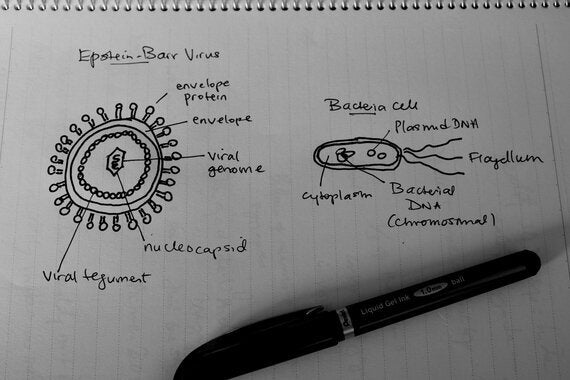 Epstein-Barr Virus
envelope
protein
envelope
Viral
genome
nucleocapsid
Viral tegument
Bacteria cell
Plasmid DNA
Flagellum
cytoplasm
Bacterial
DNA
(chromosomal)
Pentel
Liquid Gel Ink 1.0mm ball